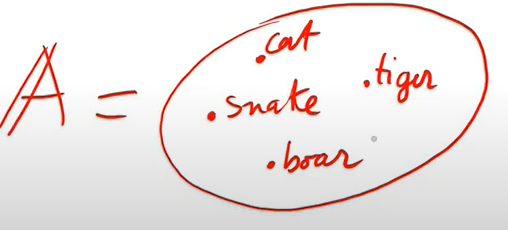 A =
.cat
.tiger
.snake
.boar